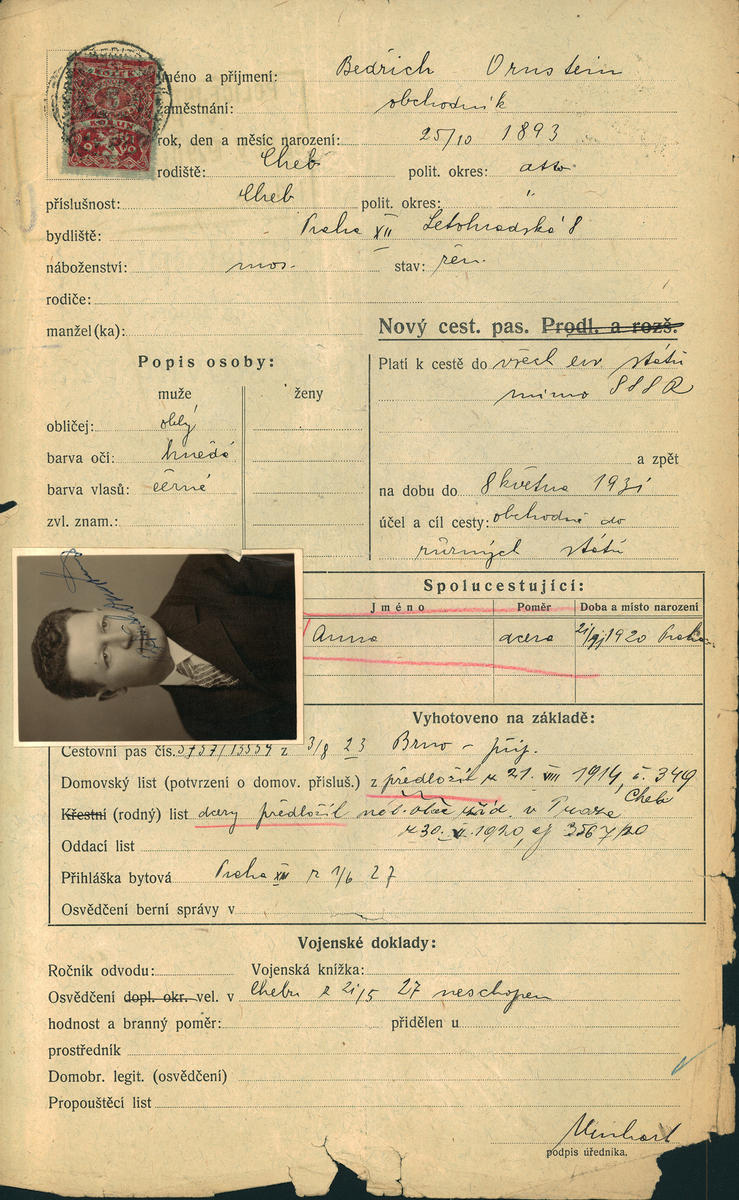 Jméno a příjmení: Bedřich Ornstein
zaměstnání: obchodník
rok, den a měsíc narození: 25/10 1893
rodiště: Cheb polit. okres: atto
příslušnost: Cheb polit. okres: "
bydliště: Praha XII Letohradská 8
náboženství: mos. stav: žen.
rodiče:
manžel(ka):
Nový cest. pas. Prodl. a rozš.
Popis osoby:
muže ženy
obličej: oblý
barva očí: hnědé
barva vlasů: černé
zvl. znam.:
Platí k cestě do všech ev. států
mimo SSSR
a zpět
na dobu do 8 května 1931
účel a cíl cesty: obchodně do
různých států
Spolucestující:
Jméno Poměr Doba a místo narození
Anna dcera 21/VI 1920 Praha
Vyhotoveno na základě:
Cestovní pas čís. 5757/13559 z 3/8 23 Brno –
Domovský list (potvrzení o domov. přísluš.) z předložil z 21. VIII 1914, č. 349
Cheb
Křestní (rodný) list dcery předložil náb. v Praze
z 30. 1920, čj 3567/20
Oddací list
Přihláška bytová Praha XII z 1/6 27
Osvědčení berní správy v
Vojenské doklady:
Ročník odvodu: Vojenská knížka:
Osvědčení dopl. okr. vel. v Chebu z 21/5 27 neschopen
hodnost a branný poměr: přidělen u
prostředník
Domobr. legit. (osvědčení)
Propouštěcí list
podpis úředníka.